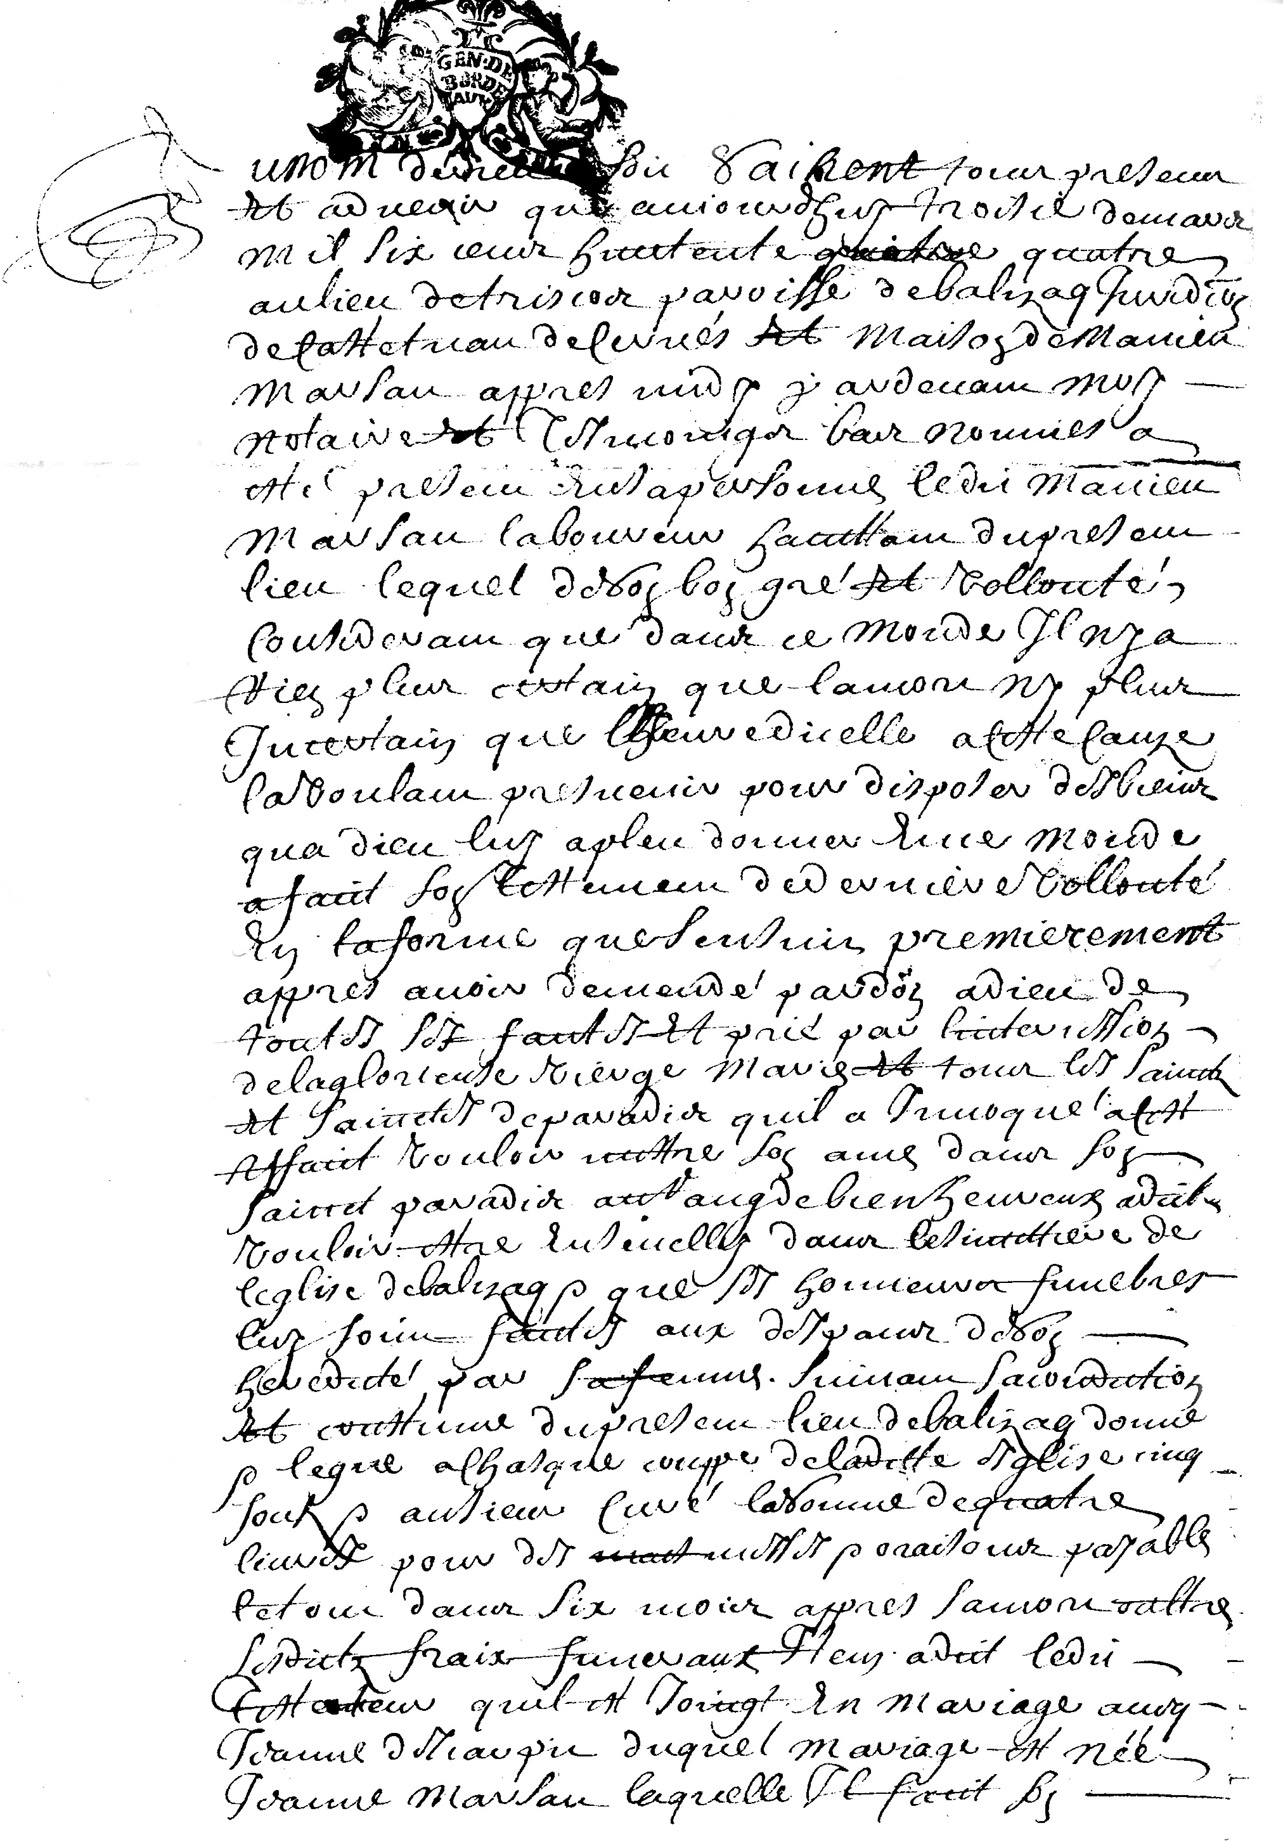 GEN·DE
BORDE
AUX
Au nom de dieu soit Sachent tous presens
et advenir que aujourdhuy troisie de mars
mil six cens huitente quatre
au lieu de triscos paroisse de balizaq Juridion
de Castetnau de Cernés et maison de Manieu
Marsau appres midy pardevant moy
notaire et tesmoings bas nommés a
esté present en sa personne ledit Manieu
Marsau laboureur habittant du present
lieu lequel de son bon gré et vollonté
Considerant que dans ce monde Il ny a
rien plus certain que la mort ny plus
Incertain que lheure dicelle a cette cause
la voulant prevenir pour disposer des biens
qua dieu luy a pleu donner en ce monde
a fait son testement de derniere vollonté
En la forme que sensuit premierement
appres avoir demendé pardon a dieu de
toutes ses fautes et prié par linterssion
de la glorieuse vierge marie et tous les Saincts
et Sainctes de paradis quil a Invoqué a cest
effait vouloir mettre son ame dans son
sainct paradis au rang de bienheureux a dict
vouloir estre ensevelly dans le simettiere de
leglise de balizaq p que ses honneurs funebres
luy soint faites aux despans de son
heredité par sa femme suivant sa condition
et couttume du present lieu de balizaq donne
p legue a chasque couppe de laditte esglise cinq
sous p au sieur Curé la somme de quatre
livres pour des messes p oraisons payable
le tout dans six mois appres sa mort oultre
lesdicts fraix funeraux Item a dit ledit
testateur quil est Joingt en mariage avecq
Jeanne duquel mariage est née
Jeanne Marsau laquelle Il fait son